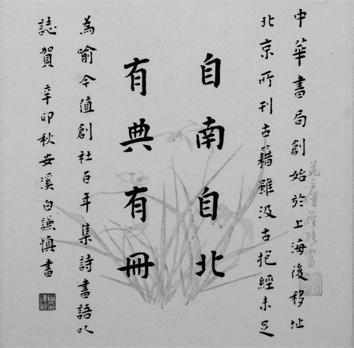 中華書局創始於上海後移址
北京所刊古籍雖汲古抱經未足
自南自北
有典有冊
為喻今值創社百年集詩書語以
誌賀 辛卯秋安溪白謙慎書